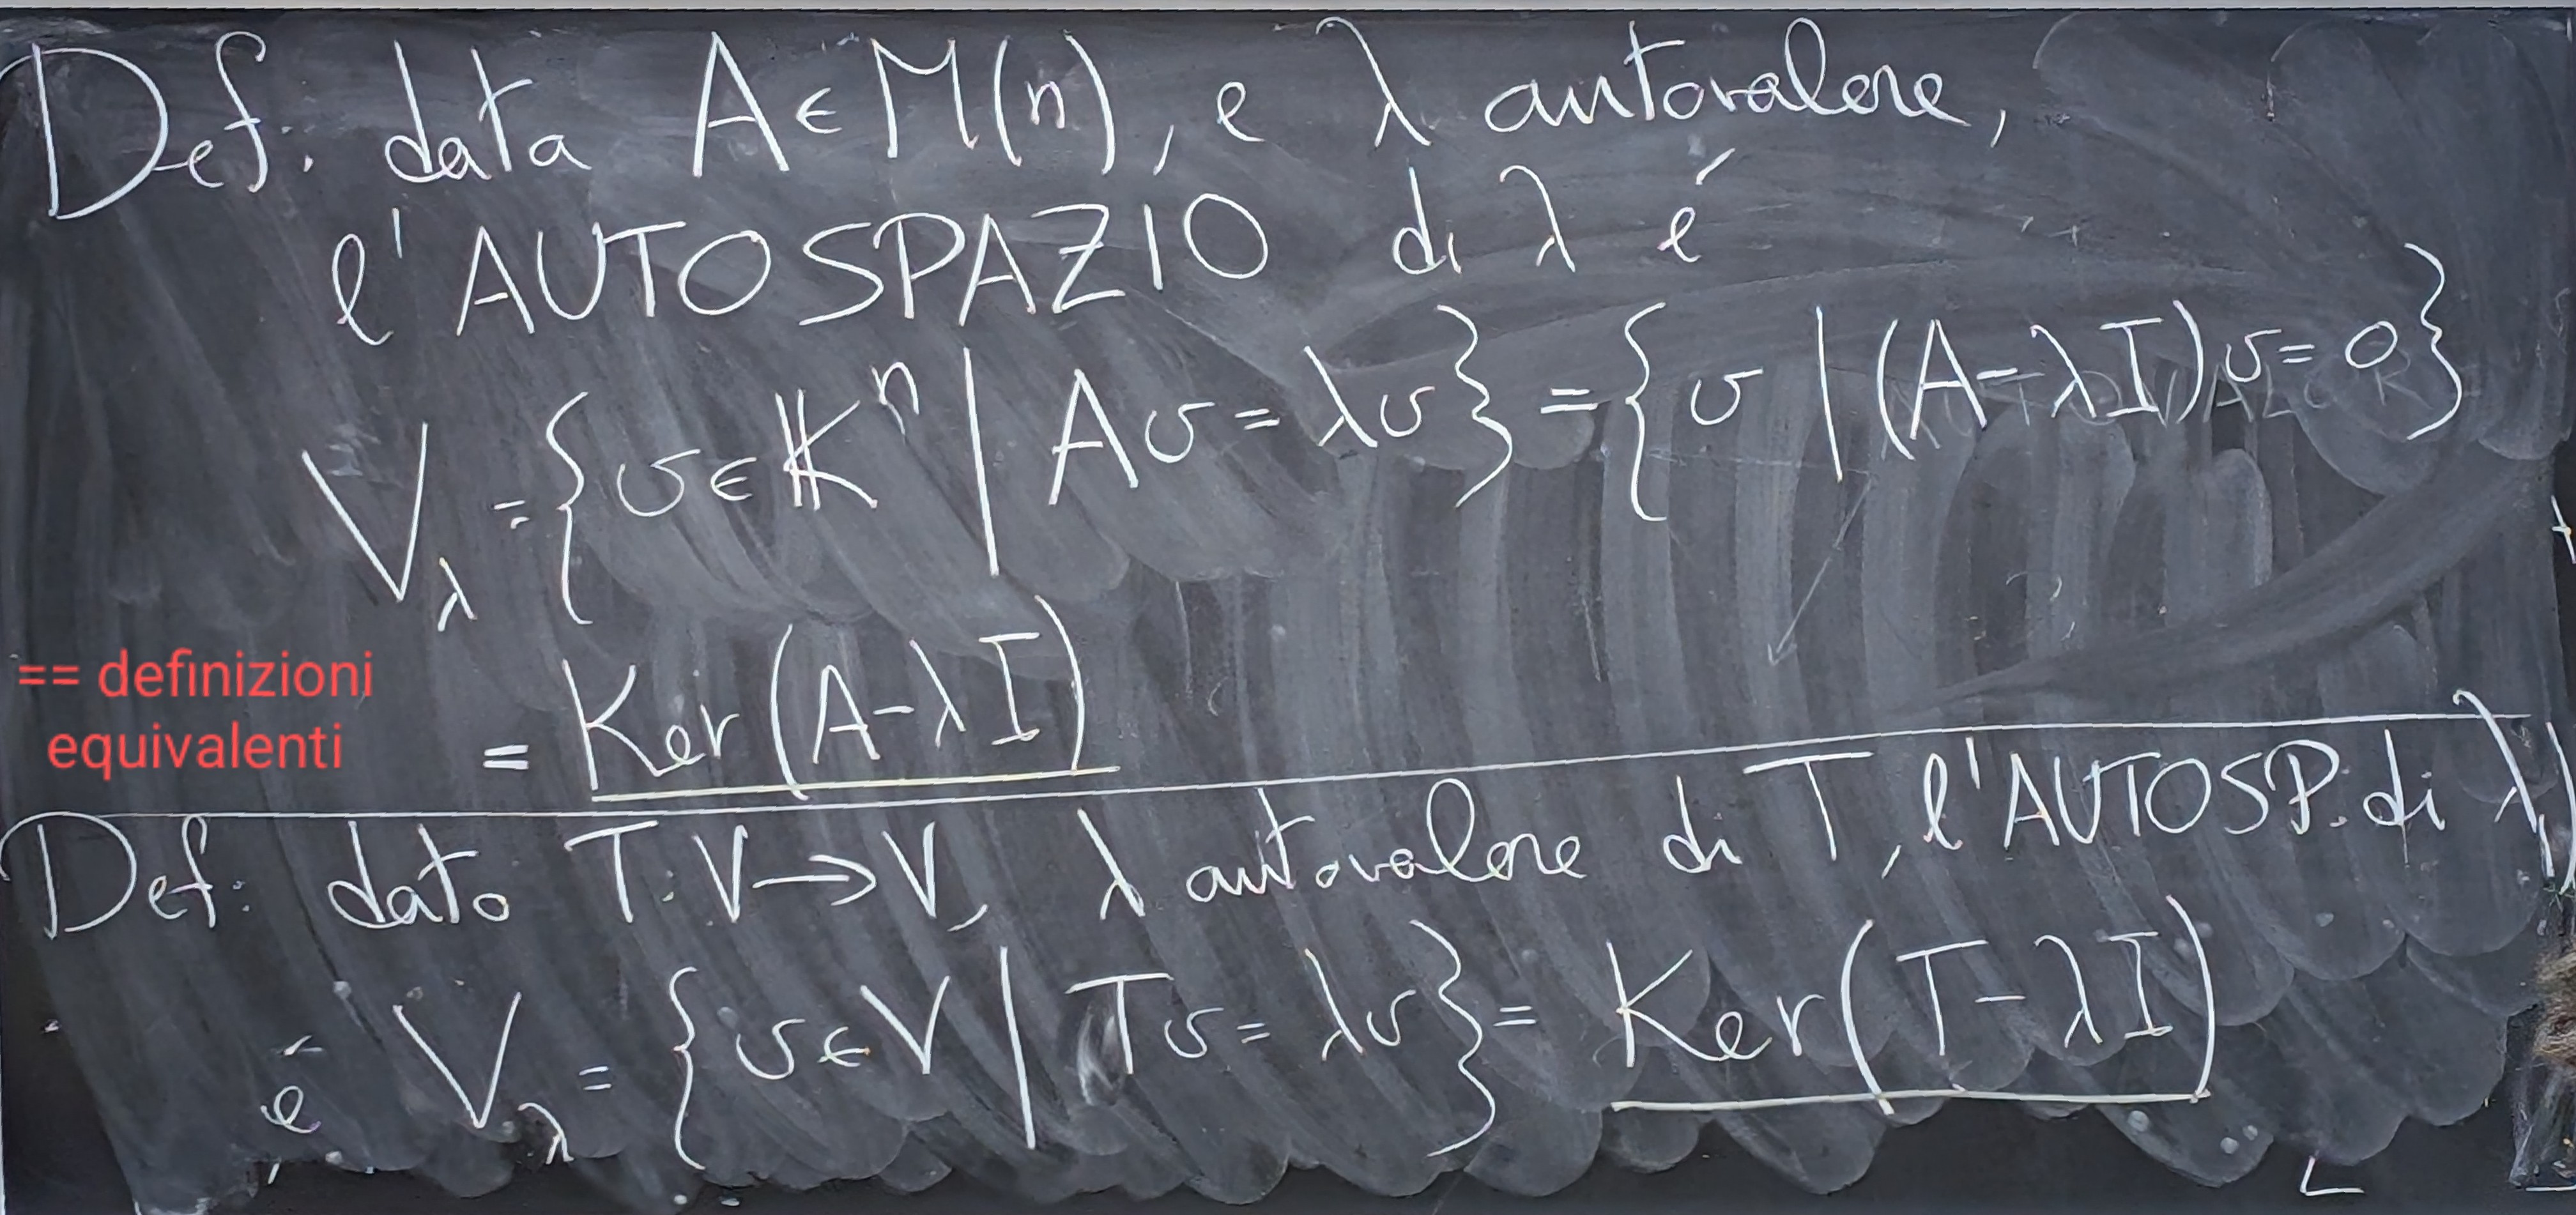 Def. data A ∈ M(n), e λ autovalore,
l'AUTOSPAZIO di λ é
V_λ = { v ∈ 𝕂^n | Av = λv } = { v | (A-λI)v = 0 }
== definizioni
equivalenti
= Ker(A-λI)
Def: dato T: V → V, λ autovalore di T, l'AUTOSP. di λ
é V_λ = { v ∈ V | Tv = λv } = Ker(T-λI)